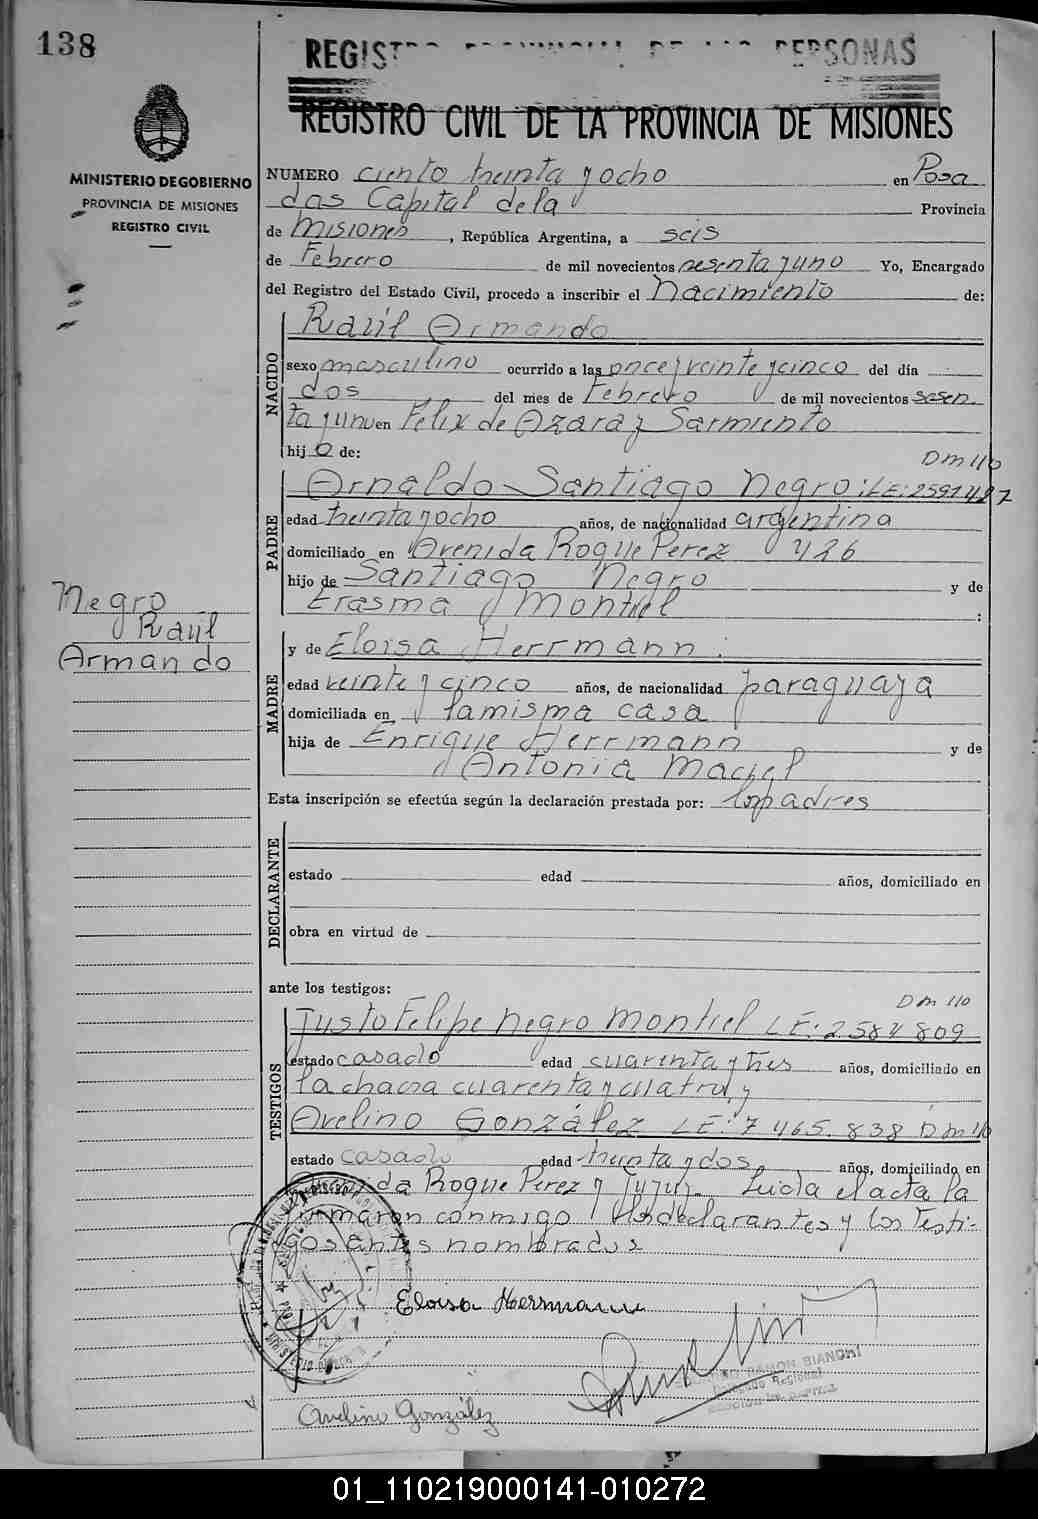 138
REGISTRO PROVINCIAL DE LAS PERSONAS
REGISTRO CIVIL DE LA PROVINCIA DE MISIONES
MINISTERIO DE GOBIERNO
PROVINCIA DE MISIONES
REGISTRO CIVIL
NUMERO ciento treinta y ocho en Posa
das Capital de la Provincia
de Misiones, República Argentina, a seis
de Febrero de mil novecientos sesenta y uno Yo, Encargado
del Registro del Estado Civil, procedo a inscribir el Nacimiento de:
NACIDO
Raúl Armando
sexo masculino ocurrido a las once y veinte y cinco del día
dos del mes de Febrero de mil novecientos sesen
ta y uno en Felix de Azara y Sarmiento
hijo de:
DM 110
PADRE
Arnaldo Santiago Negro: LE: 2591487
edad treinta y ocho años, de nacionalidad argentina
domiciliado en Avenida Roque Perez 426
hijo de Santiago Negro y de
Erasma Montiel :
Negro
Raúl
Armando
MADRE
y de Eloisa Herrmann :
edad veinte y cinco años, de nacionalidad paraguaya
domiciliada en la misma casa
hija de Enrique Herrmann y de
Antonia Maciel
Esta inscripción se efectúa según la declaración prestada por: los padres
DECLARANTE
estado edad años, domiciliado en
obra en virtud de
ante los testigos:
DM 110
TESTIGOS
Justo Felipe Negro Montiel LE: 2584809
estado casado edad cuarenta y tres años, domiciliado en
la chacra cuarenta y cuatro, y
Avelino González LE: 7465.838 DM 110
estado casado edad treinta y dos, años, domiciliado en
da Roque Perez y Jujuy. Leida el acta la
firmaron conmigo los declarantes y los testi-
gos antes nombrados
Eloisa Herrmann
RAMON BIANCHI
Regional
Avelino González
01_110219000141-010272